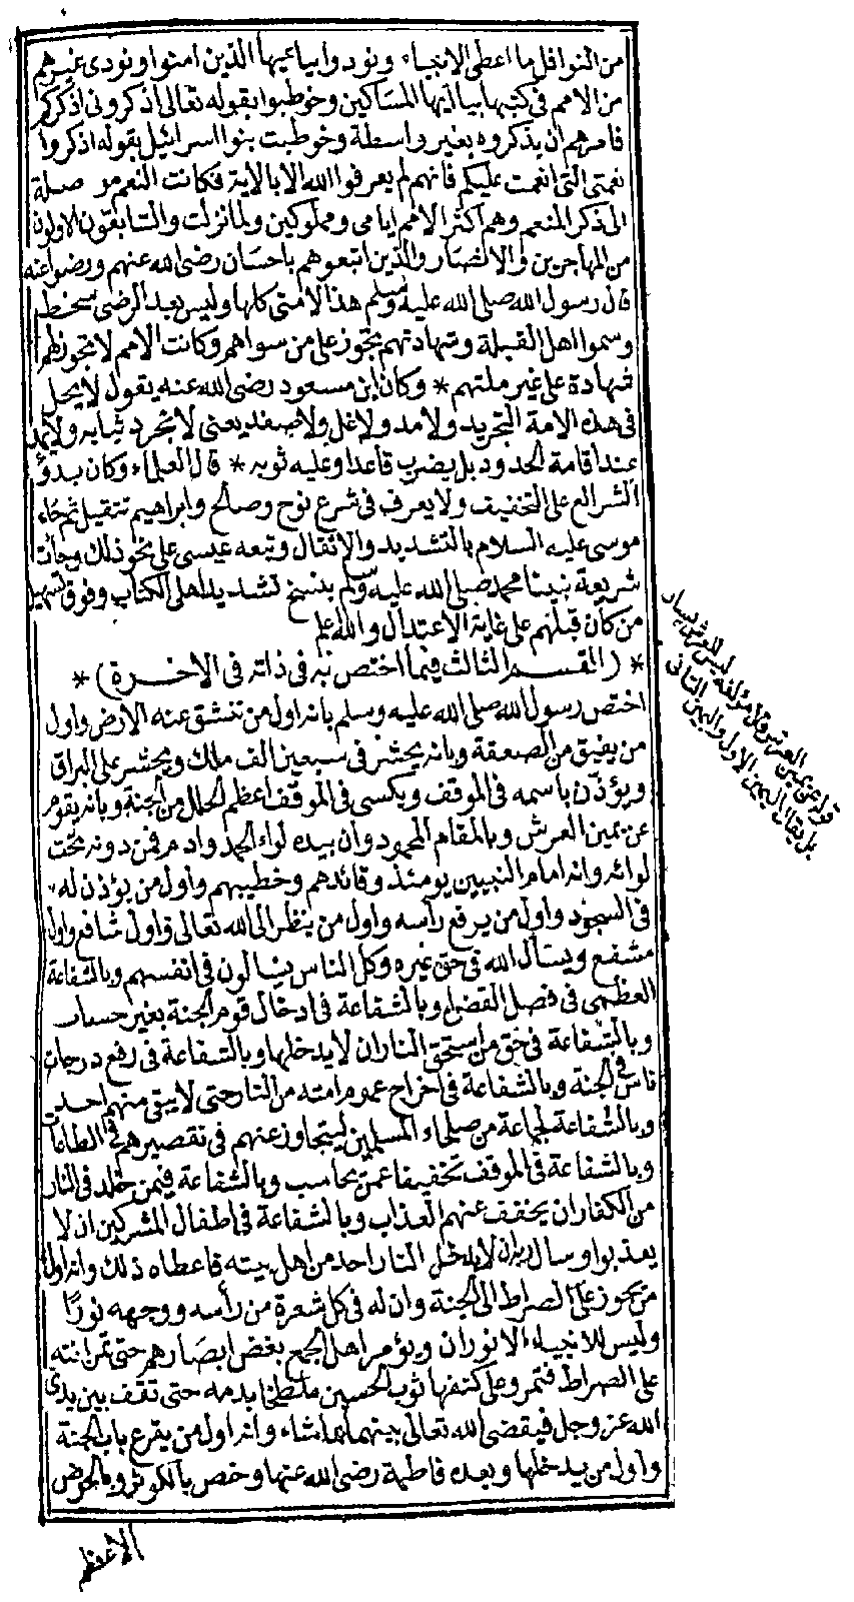 من النوافل ما اعطى الانبياء ونودوا بياءيها الذين امنوا ونودى غيرهم
من الامم فى كتبها بياايها المساكين وخوطبوا بقوله تعالى اذكرونى اذكركم
فامرهم ان يذكروه بغير واسطة وخوطبت بنوا اسرائيل بقوله اذكروا
نعمتى التى انعمت عليكم فانهم لم يعرفوا الله الا بالاية فكانت النعم صلة
الى ذكر المنعم وهم اكثر الامم ايامى ومملوكين ولما نزلت والسابقون الاولون
من المهاجرين والانصار والذين اتبعوهم باحسان رضى الله عنهم ورضوا عنه
قال رسول الله صلى الله عليه وسلم هذا لامتى كلها وليس بعد الرضى سخط
وسموا اهل القبلة وشهادتهم تجوز على من سواهم وكانت الامم لا تجوز لهم
شهادة على غير ملتهم * وكان ابن مسعود رضى الله عنه يقول لا يحل
فى هذه الامة التجريد ولا مد ولا غل ولا صفد يعنى لا تجرد ثيابه ولا يمد
عند اقامة الحدود بل يضرب قاعدا وعليه ثوبه * قال العلماء وكان بدؤ
الشرائع على التخفيف ولا يعرف فى شرع نوح وصالح وابراهيم تثقيل ثم جاء
موسى عليه السلام بالتشديد والاثقال وتبعه عيسى على نحو ذلك وجأت
شريعة نبينا محمد صلى الله عليه وسلم بنسخ تشديد اهل الكتاب وفوق تسهيل
من كان قبلهم على غاية الاعتدال والله علم
* (القسم الثالث فيما اختص به فى ذاته فى الاخرة) *
اختص رسول الله صلى الله عليه وسلم بانه اول من تنشق عنه الارض واول
من يفيق من الصعقة وبانه يحشر فى سبعين الف ملك ويحشر على البراق
ويؤذن باسمه فى الموقف ويكسى فى الموقف اعظم الحلل من الجنة وبانه يقوم
عن يمين العرش وبالمقام المحمود وان بيده لواء الحمد وادم فمن دونه تحت
لوائه وانه امام النبيين يومئذ وقائدهم وخطيبهم واول من يؤذن له
فى السجود واول من يرفع رأسه واول من ينظر الى الله تعالى واول شافع واول
مشفع ويسأل الله فى حق غيره وكل الناس يسالون فى انفسهم وبالشفاعة
العظمى فى فصل القضاء وبالشفاعة فى ادخال قوم الجنة بغير حساب
وبالشفاعة فى حق من استحق النار ان لا يدخلها وبالشفاعة فى رفع درجات
ناس فى الجنة وبالشفاعة فى اخراج عموم امته من النار حتى لا يبقى منهم احد
وبالشفاعة لجماعة من صلحاء المسلمين ليتجاوز عنهم فى تقصيرهم فى الطاعات
وبالشفاعة فى الموقف تخفيفا عمن يحاسب وبالشفاعة فيمن خلد فى النار
من الكفار ان يخفف عنهم العذاب وبالشفاعة فى اطفال المشركين ان لا
يعذبوا وسال ربه ان لا يدخل النار احد من اهل بيته فاعطاه ذلك وانه اول
من يجوز على الصراط الى الجنة وان له فى كل شعرة من رأسه ووجهه نورًا
وليس للانبياء الا نوران ويؤمر اهل الجمع بغض ابصارهم حتى تمر ابنته
على الصراط فتمر وعلى كتفها ثوب الحسين ملطخا بدمه حتى تقف بين يدى
الله عز وجل فيقضى الله تعالى بينهما ما شاء وانه اول من يقرع باب الجنة
واول من يدخلها وبعده فاطمة رضى الله عنها وخص بالكوثر وبالحوض
الاعظم
قوله عن يمين العرش قال مؤلفه ليس للعرش يسار
بل يقال اليمين الاول واليمين الثانى